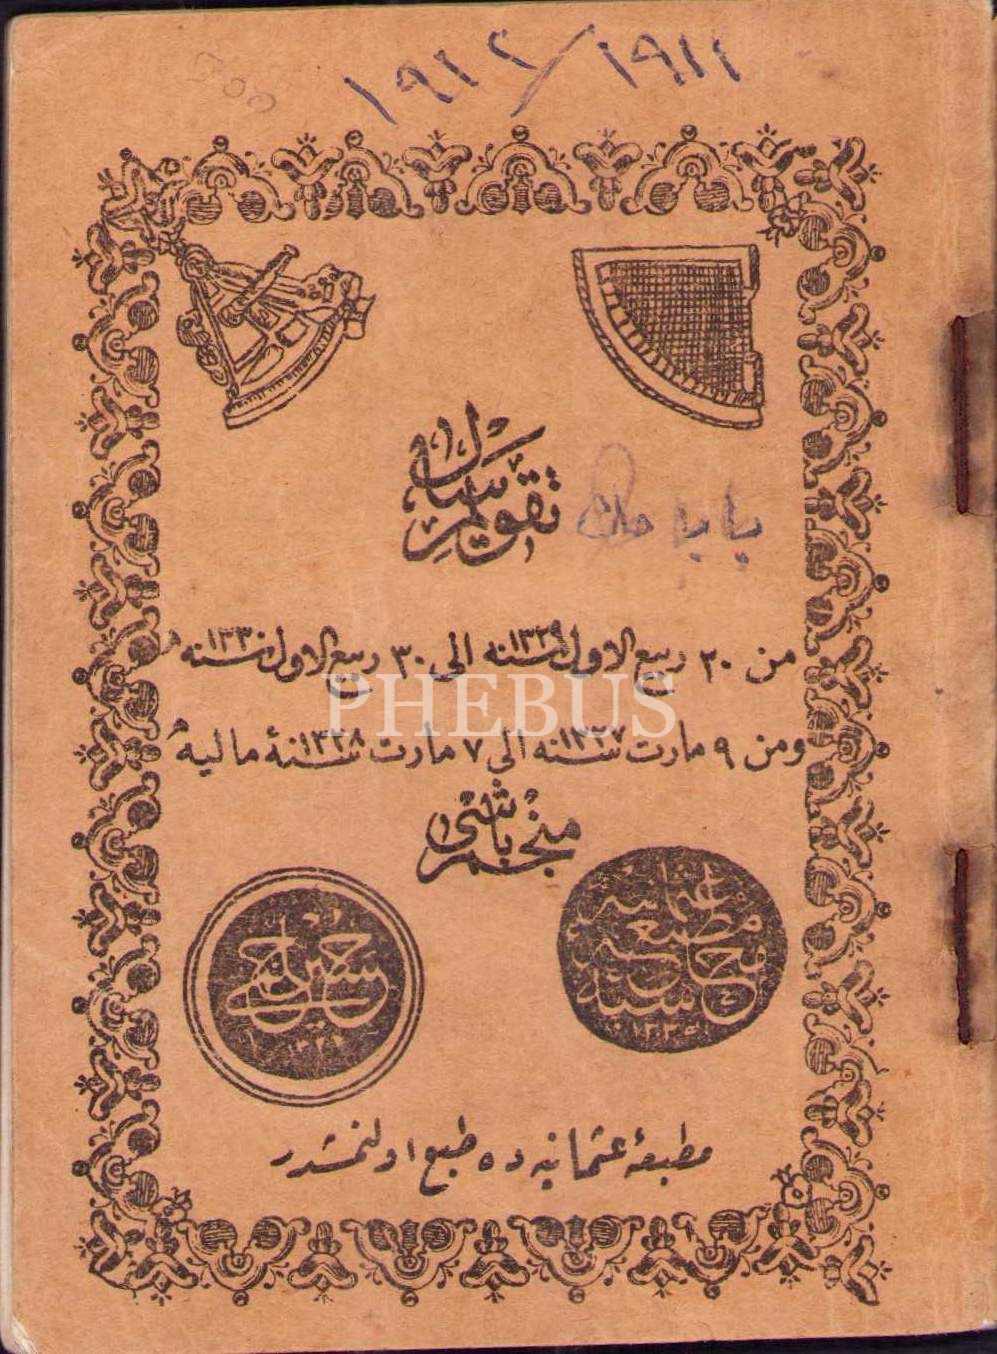 ١٩١٢/١٩١١
تقويم سال
بابا
من ٢٠ ربيع الاول سنه ١٣٢٩ الى ٣٠ ربيع الاول سنه ١٣٣٠
ومن ٩ مارت سنه ١٣٢٧ الى ٧ مارت سنه ١٣٢٨ ماليه
PHEBUS
منجم باشى
حسين حلمى
مطبعه عثمانيه
١٣٢٩
مطبعۀ عثمانيه ده طبع اولنمشدر